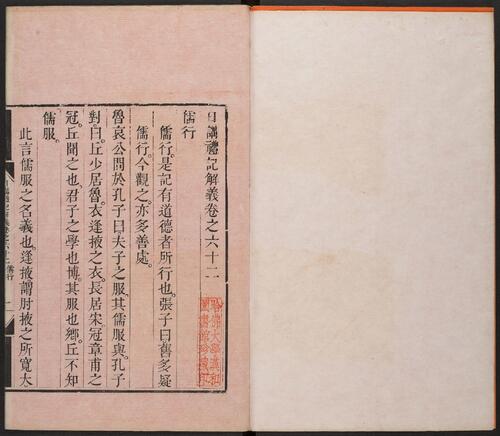 日講禮記解義卷之六十二
儒行
儒行是記有道德者所行也張子曰舊多疑
儒行今觀之亦多善處
魯哀公問於孔子曰夫子之服其儒服與孔子
對曰丘少居魯衣逢掖之衣長居宋冠章甫之
冠丘聞之也君子之學也博其服也鄉丘不知
儒服
此言儒服之名義也逢掖謂肘掖之所寬大
哈佛大學漢和
圖書館珍藏印
儒行
一